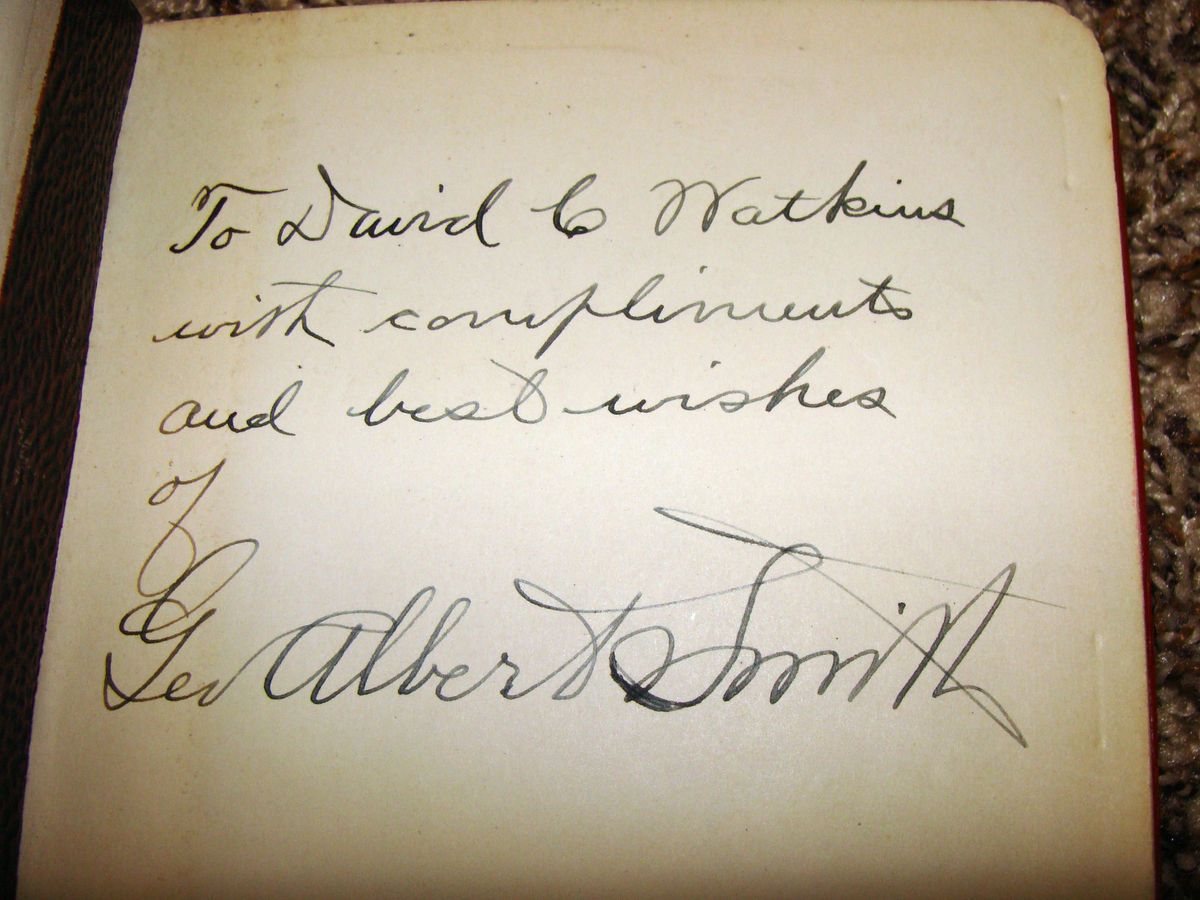 To David C Watkins
with compliments
and best wishes
of
Geo Albert Smith